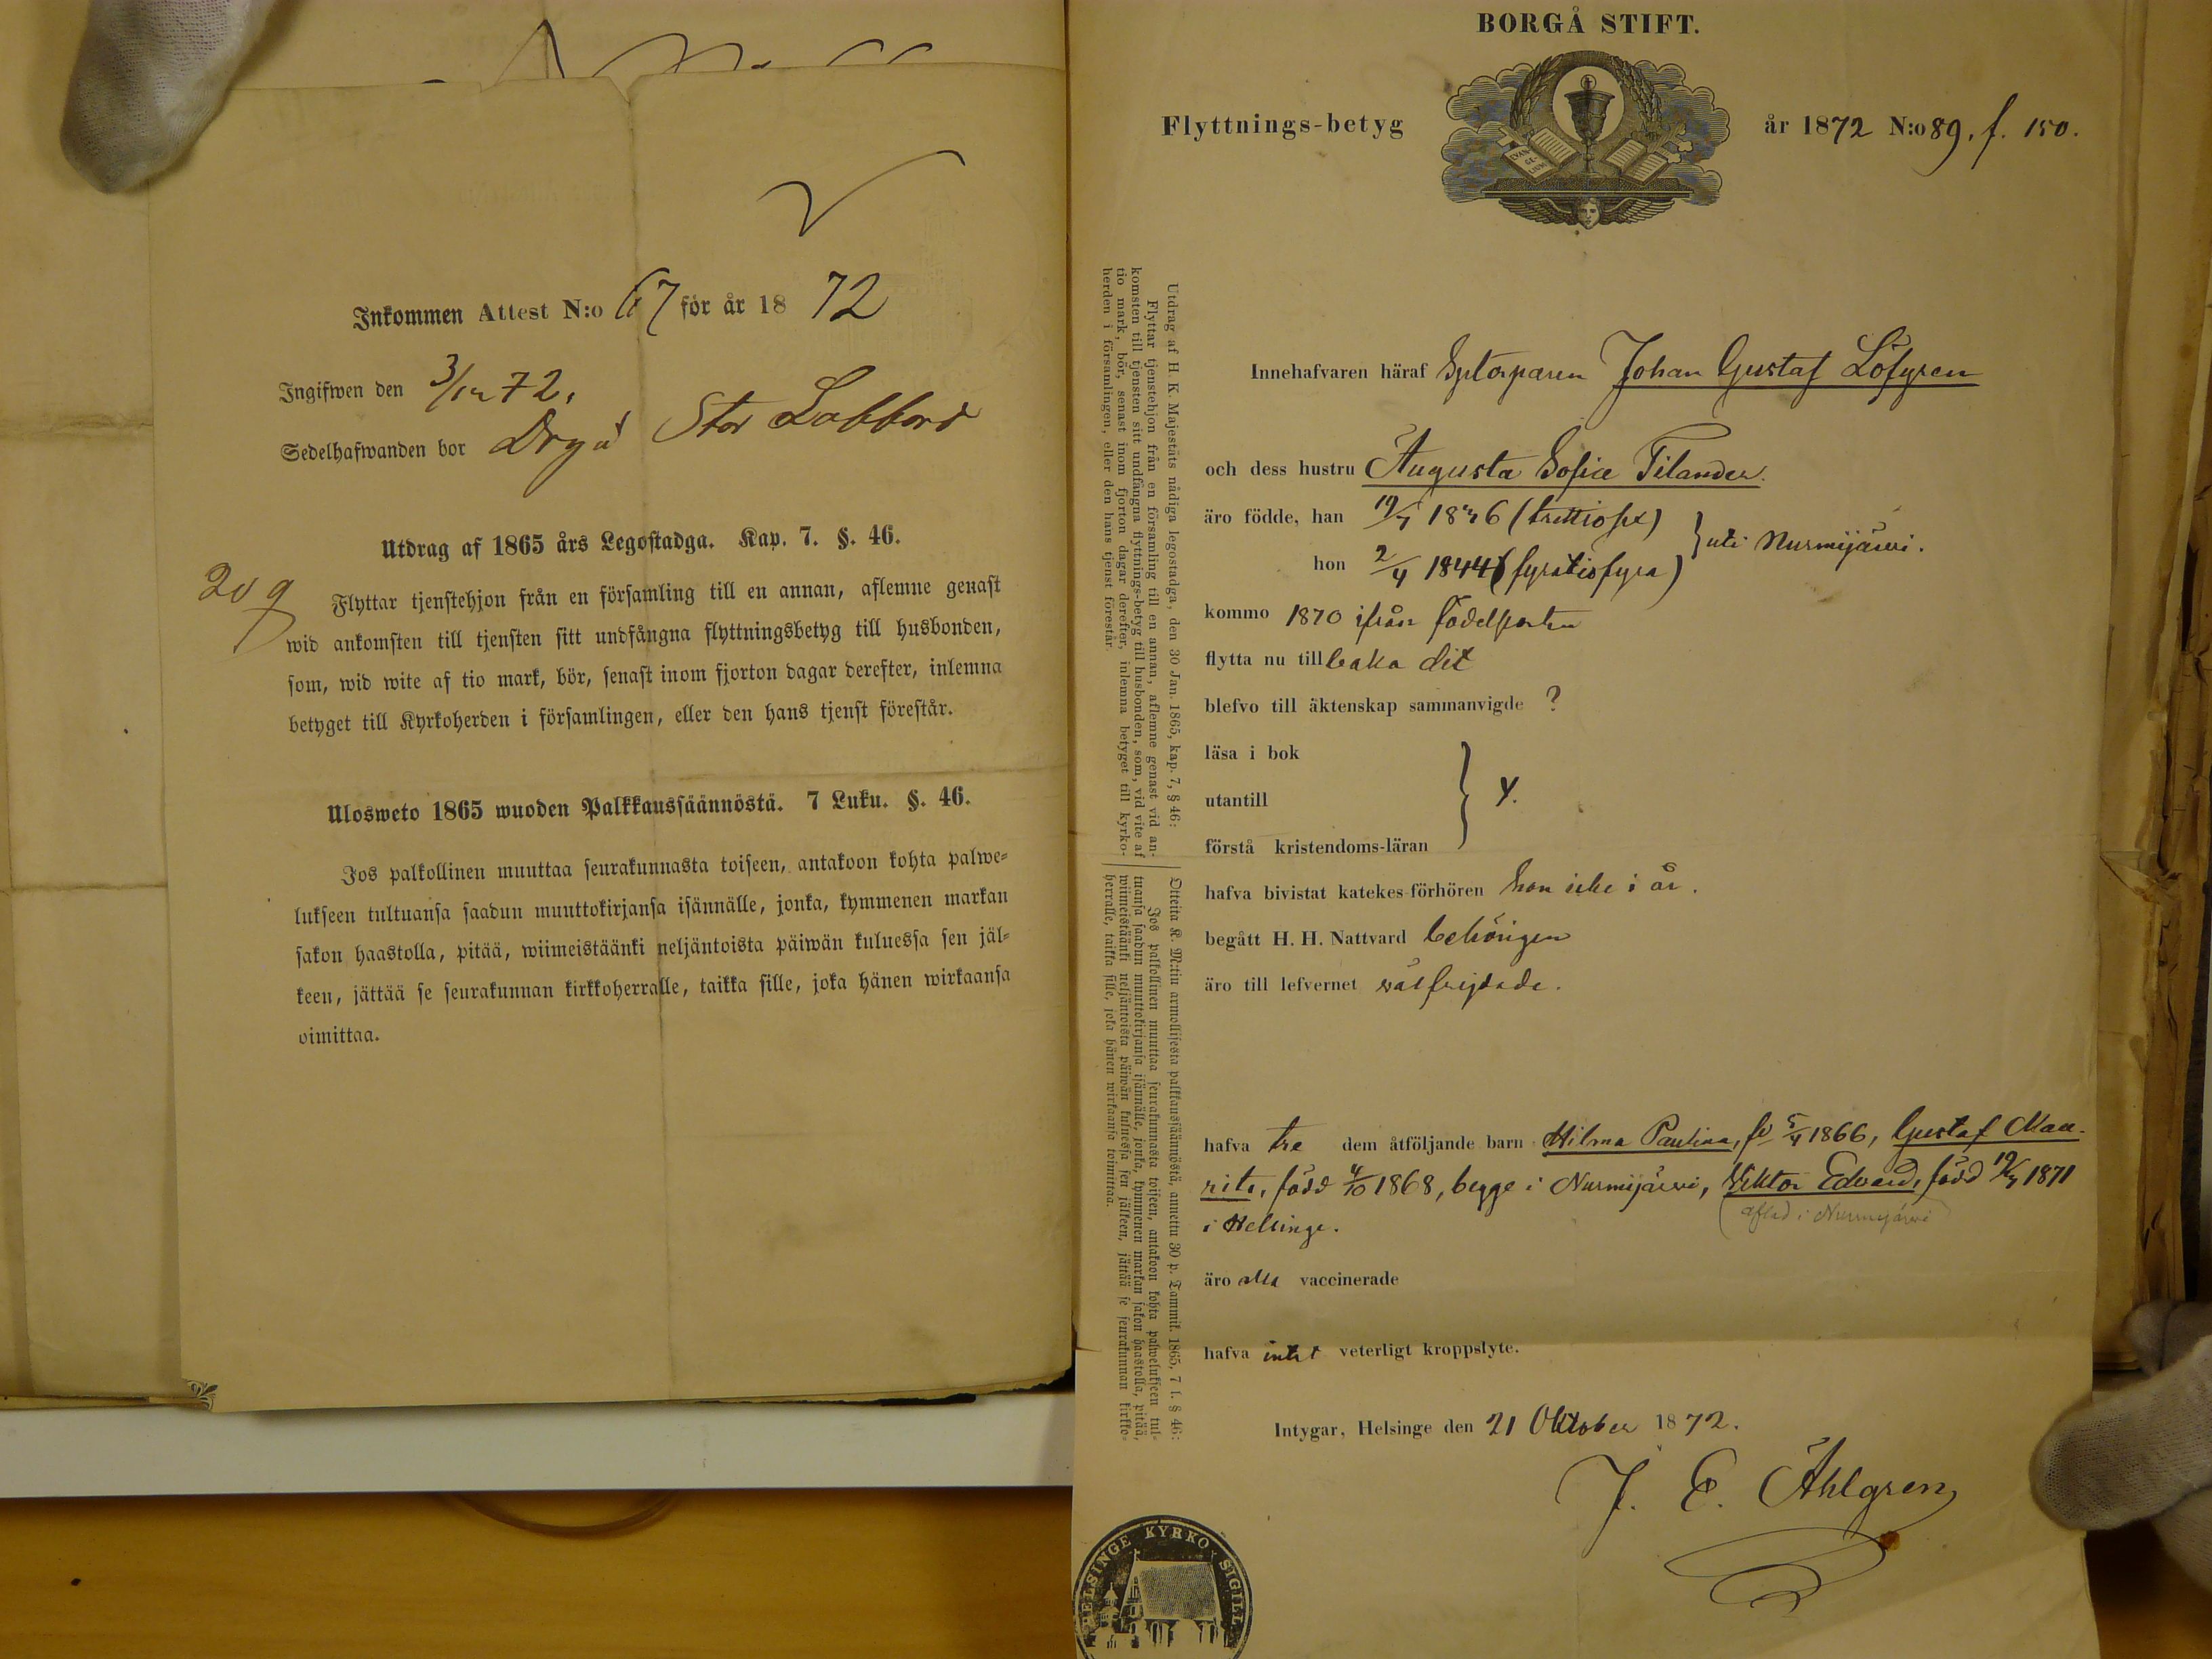 Inkommen Attest N:o 67 för år 1872
Ingifwen den 3/12 72.
Sedelhafwanden bor Stor Labbord
Utdrag af 1865 års Legostadga. Kap. 7. §. 46.
209
Flyttar tjenstehjon från en församling till en annan, aflemne genast
wid ankomsten till tjensten sitt undfångna flyttningsbetyg till husbonden,
som, wid wite af tio mark, bör, senast inom fjorton dagar derefter, inlemna
betyget till Kyrkoherden i församlingen, eller den hans tjenst förestår.
Ulosweto 1865 wuoden Palkkaussäännöstä. 7 Luku. §. 46.
Jos palkollinen muuttaa seurakunnasta toiseen, antakoon kohta palwe-
lukseen tultuansa saadun muuttokirjansa isännälle, jonka, kymmenen markan
sakon haastolla, pitää, wiimeistäänki neljäntoista päiwän kuluessa sen jäl-
keen, jättää se seurakunnan kirkkoherralle, taikka sille, joka hänen wirkaansa
oimittaa.
BORGÅ STIFT.
Flyttnings-betyg
EVAN-
GE-
LIUM
år 1872 N:o 89, f. 150.
Utdrag af H. K. Majestäts nådiga legostadga, den 30 Jan. 1865, kap. 7, § 46:
Flyttar tjenstehjon från en församling till en annan, aflemne genast vid an-
komsten till tjensten sitt undfångna flyttnings-betyg till husbonden, som, vid vite af
tio mark, bör, senast inom fjorton dagar derefter, inlemna betyget till kyrko-
herden i församlingen, eller den hans tjenst förestår.
Otteita K. M:tin armollisesta palkkaussäännöstä, annettu 30 p. Tammik. 1865, 7 l. § 46:
Jos palkollinen muuttaa seurakunnasta toiseen, antakoon kohta palwelukseen tul-
tuansa saadun muuttokirjansa isännälle, jonka, kymmenen markan sakon haastolla, pitää,
wiimeistäänki neljäntoista päiwän kuluessa sen jälkeen, jättää se seurakunnan kirkko-
herralle, taikka sille, joka hänen wirkaansa toimittaa.
Innehafvaren häraf Johan Gustaf Löfgren
och dess hustru Augusta Sofia Tilander.
äro födde, han 19/7 1836 (trettiosex)
hon 2/4 1844 (fyratiofyra)
uti Nurmijärvi.
kommo 1870 ifrån födelseorten
flytta nu tillbaka dit
blefvo till äktenskap sammanvigde ?
läsa i bok
utantill
förstå kristendoms-läran
hafva bivistat katekes-förhören hon icke i år.
begått H. H. Nattvard behörigen
äro till lefvernet välfrejdade.
hafva tre dem åtföljande barn Hilma Paulina, fö 5/4 1866, Gustaf Mau-
rits, född 4/10 1868, begge i Nurmijärvi, Viktor Edvard, född 19/4 1871
(aflad i Nurmijärvi)
i Helsinge.
äro alla vaccinerade
hafva intet veterligt kroppslyte.
Intygar, Helsinge den 21 Oktober 1872.
J. E. Åhlgren
HELSINGE KYRKO SIGILL